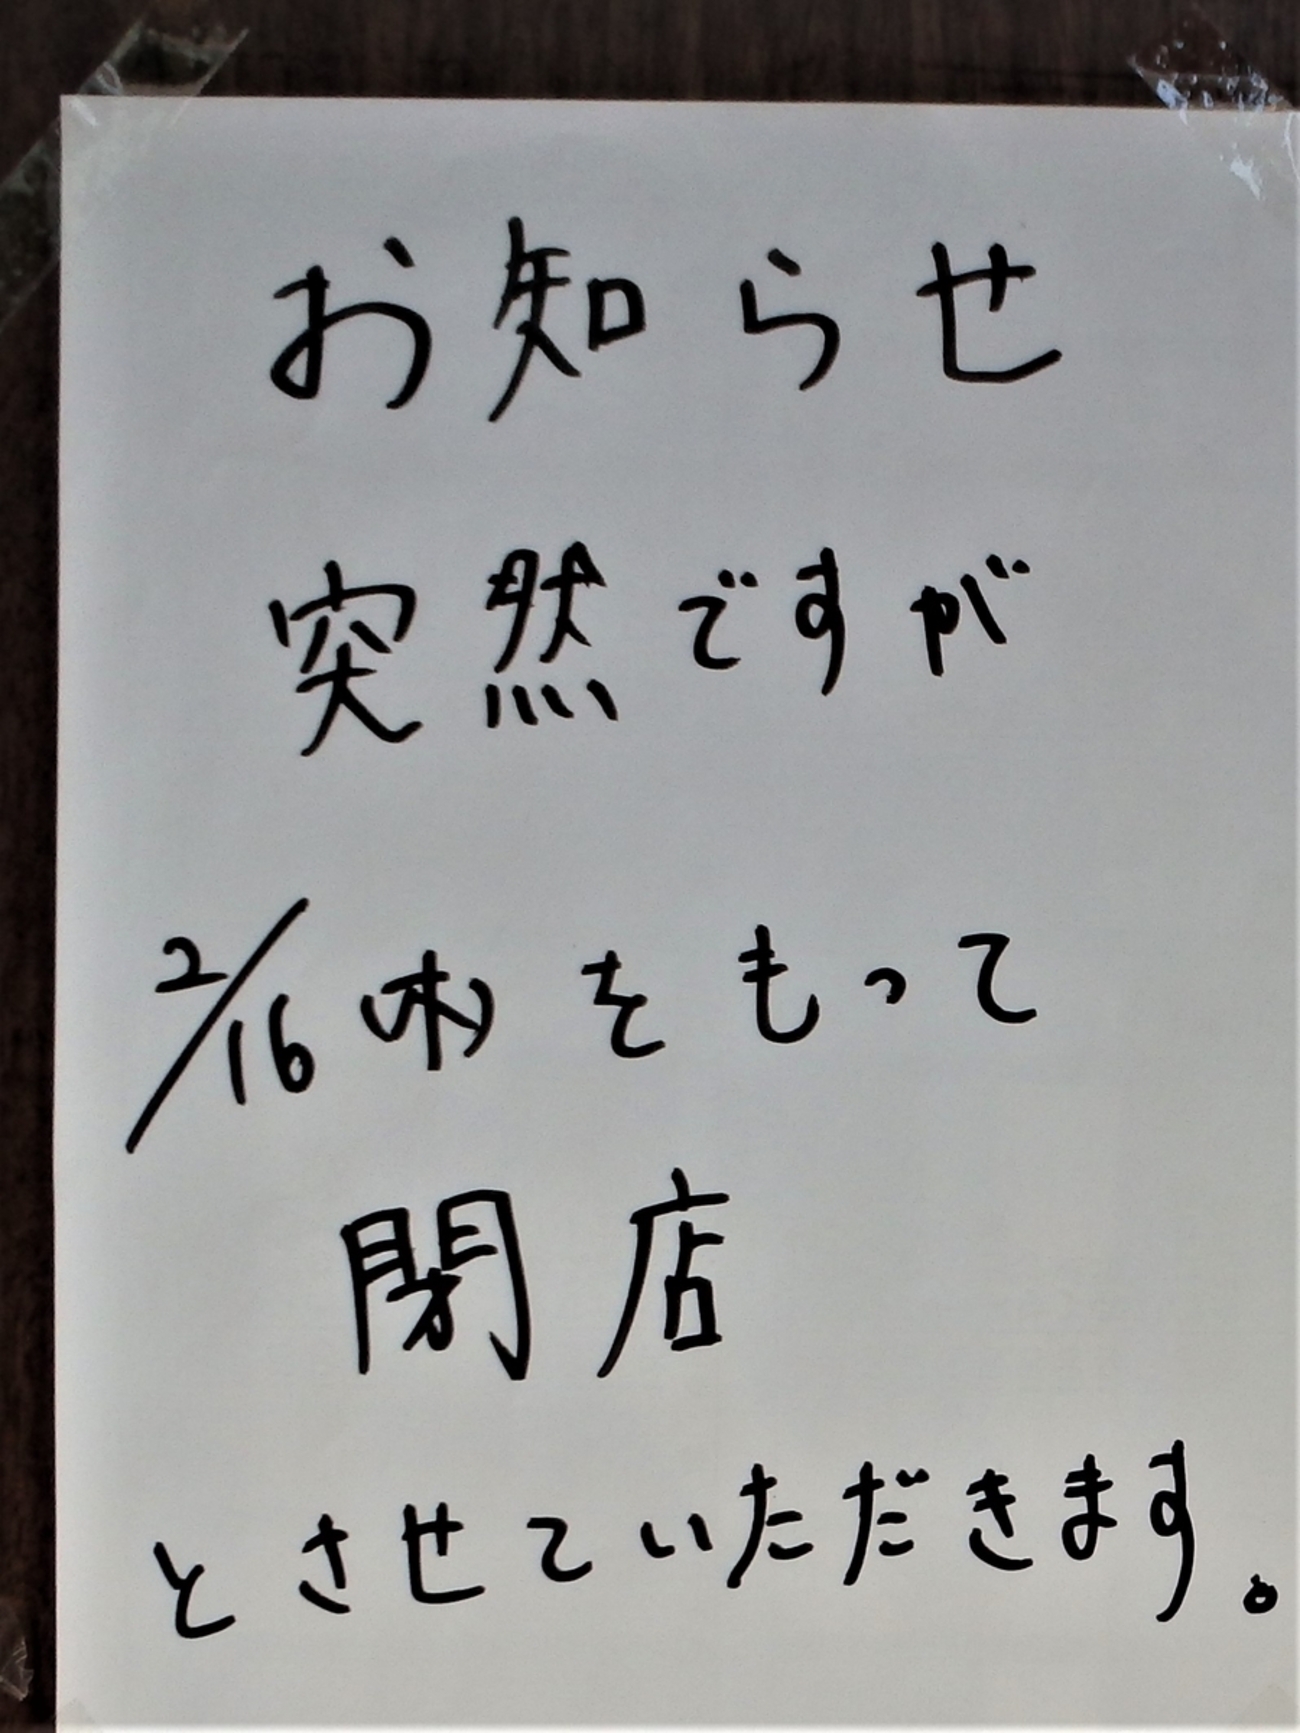 お知らせ
突然ですが
2/16(木)をもって
閉店
とさせていただきます。